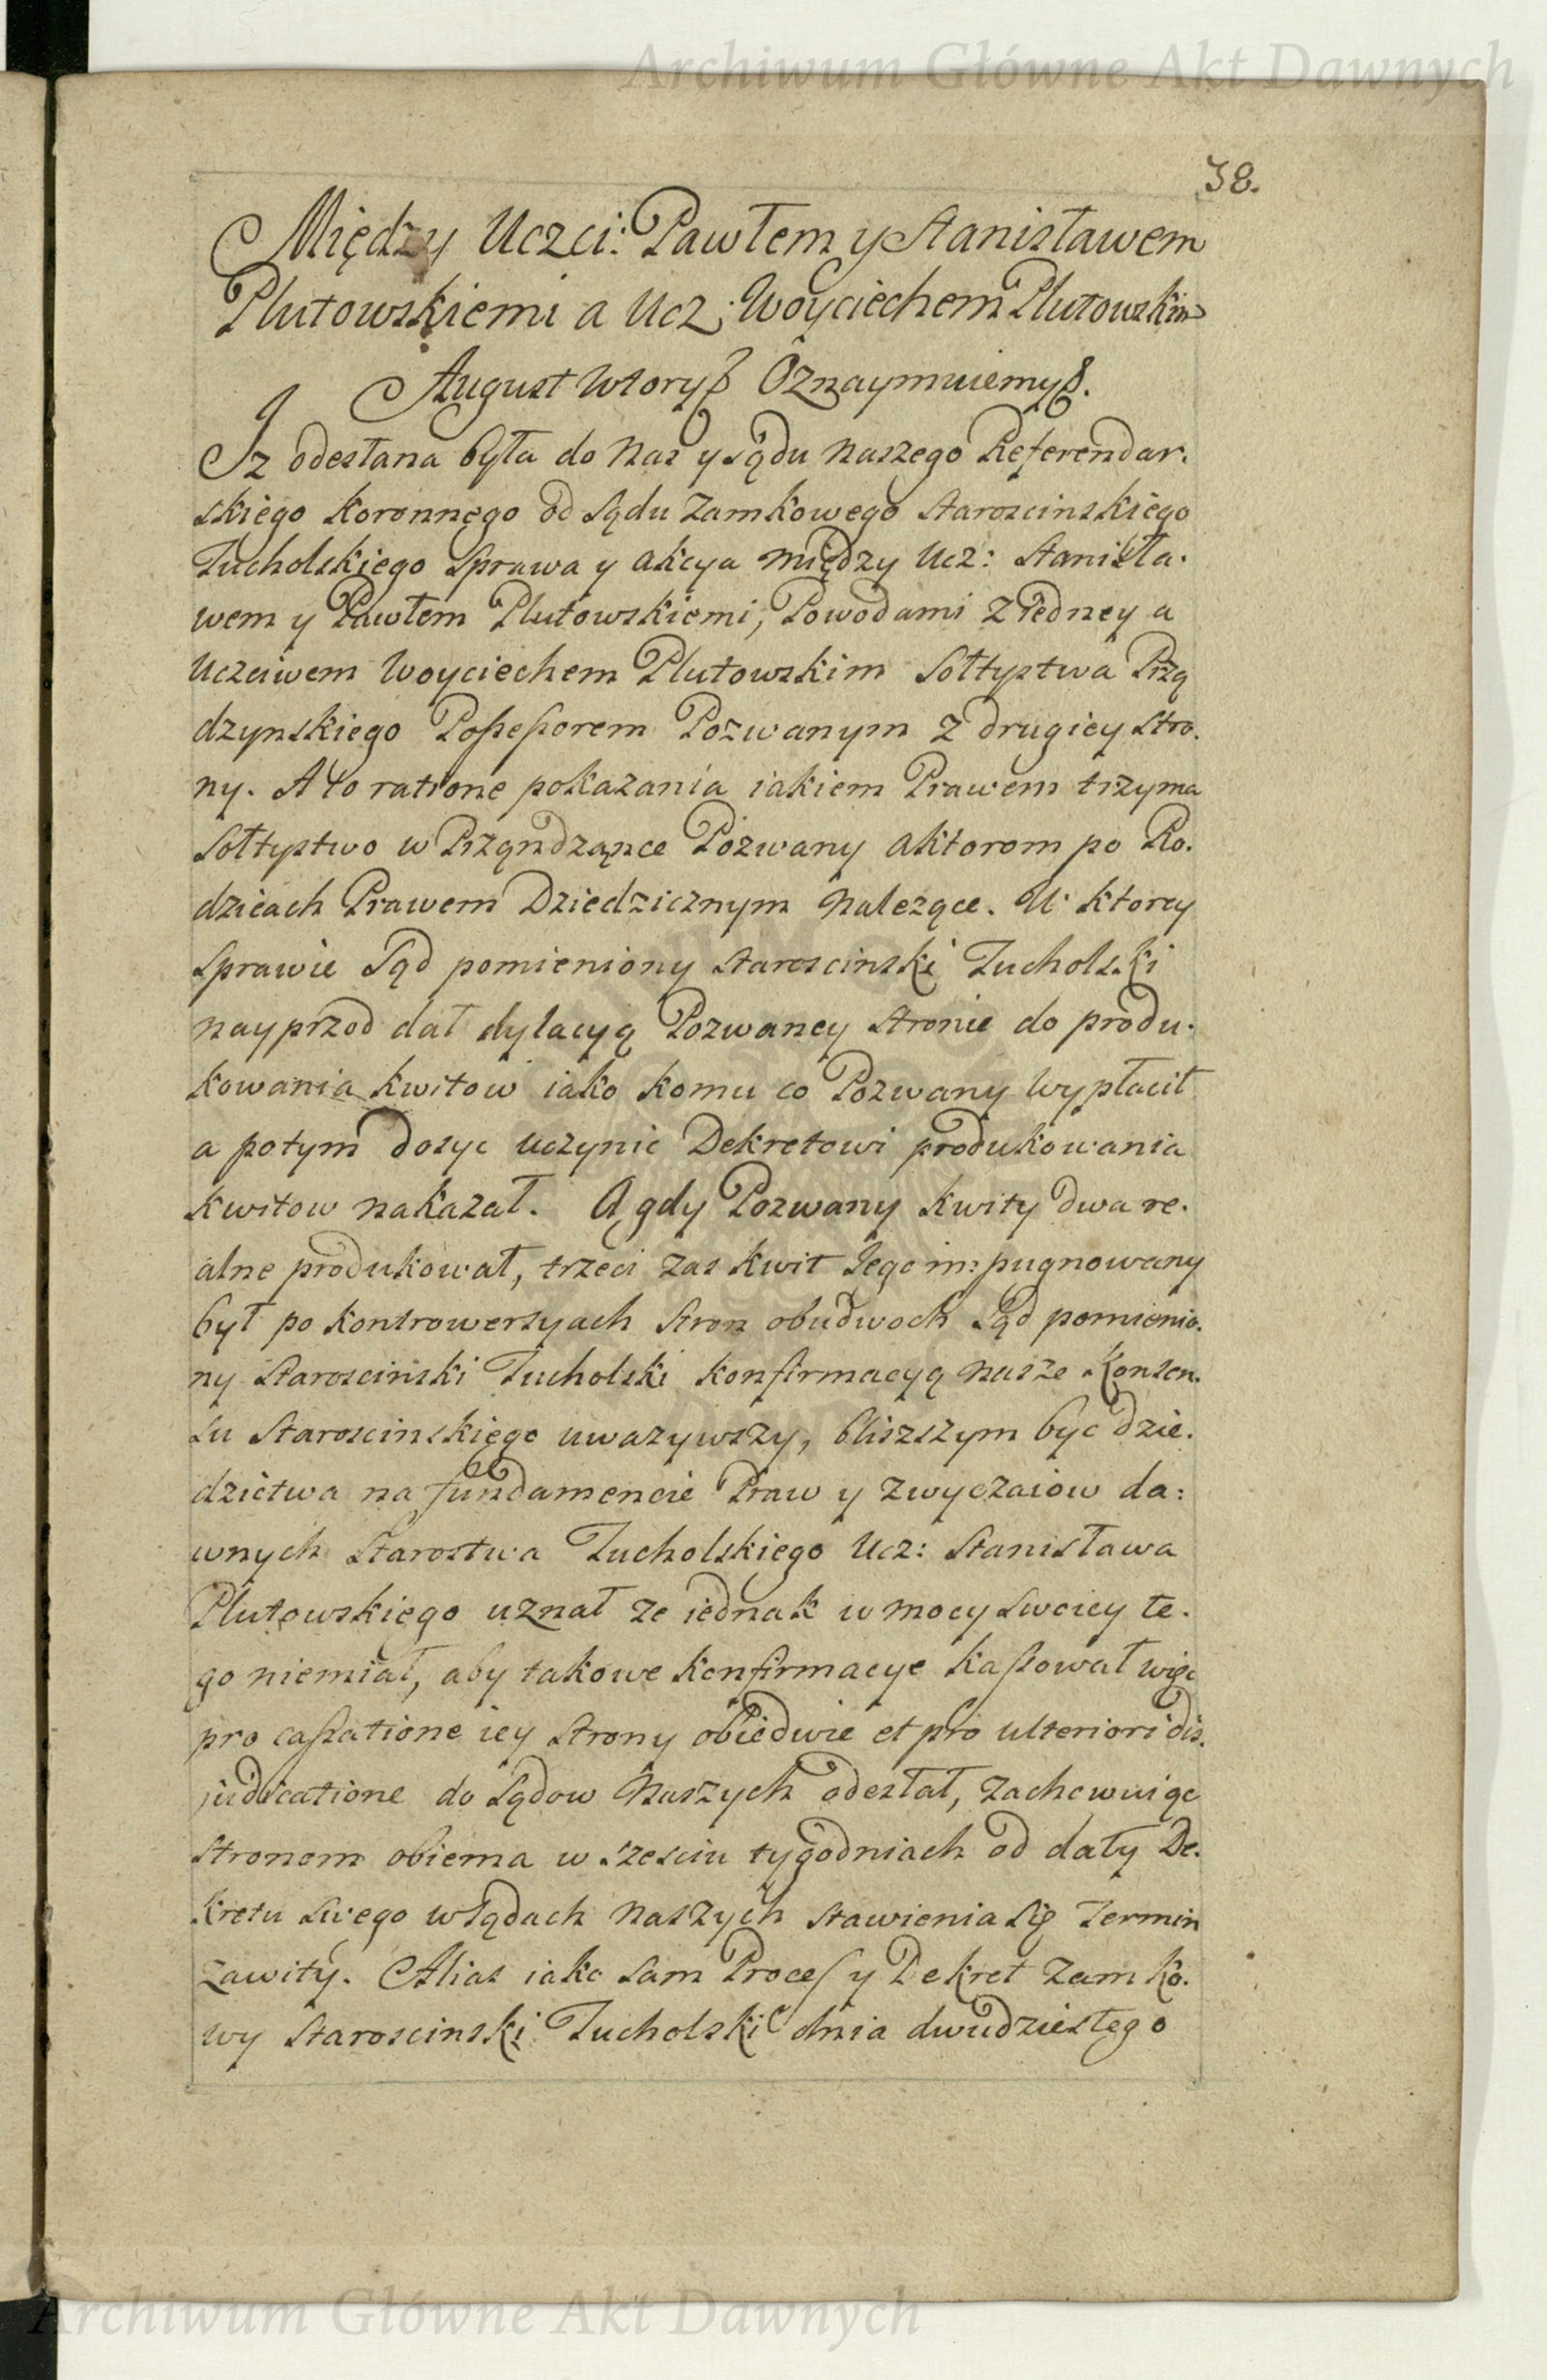 Archiwum Główne Akt Dawnych
38.
Między Uczci: Pawłem y Stanisławem
Plutowskiemi a Ucz: Woyciechem Plutowskim
August Wtory ß Oznaymuiemy ß.
Iz odesłana była do Nas y Sądu Naszego Referendar.
skiego Koronnego od Sądu Zamkowego Staroscinskiego
Tucholskiego Sprawa y akcya między Ucz: Stanisła.
wem y Pawłem Plutowskiemi, Powodami z iedney a
Uczciwem Woyciechem Plutowskim Sołtystwa Przą
dzynskiego Possessorem Pozwanym z drugiey Stro.
ny. A to ratione pokazania iakiem Prawem trzyma
Sołtystwo w Prządzące Pozwany aktorom po Ro.
dzicach Prawem Dziedzicznym Nalezące. W ktorey
Sprawie Sąd pomieniony Staroscinski Tucholski
nayprzod dał dylacyą Pozwaney Stronie do produ.
kowania kwitow iako komu co Pozwany wypłacił
a potym dosyc uczynic Dekretowi produkowania
kwitow nakazał. A gdy Pozwany kwity dwa re.
alne produkował, trzeci zas kwit Iego impugnowany
był po kontrowersyach Stron obudwoch Sąd pomienio.
ny Staroscinski Tucholski konfirmacyą nasze Konsen.
su Staroscinskiego uwazywszy, bliszszym byc dzie.
dzictwa na fundamencie Praw y zwyczaiow da:
wnych Starostwa Tucholskiego Ucz: Stanisława
Plutowskiego uznał ze iednak w mocy Swoiey te.
go niemiał, aby takowe konfirmacye kassował więc
pro cassatione iey Strony obiedwie et pro ulteriori dis.
iudicatione do Sądow Naszych odesłał, zachowuiąc
Stronom obiema w szesciu tygodniach od daty De.
kretu Swego w Sądach Naszych Stawienia Się Termin
zawity. Alias iako Sam Process y Dekret Zamko.
wy Staroscinski Tucholski dnia dwudziestego
Archiwum Główne Akt Dawnych